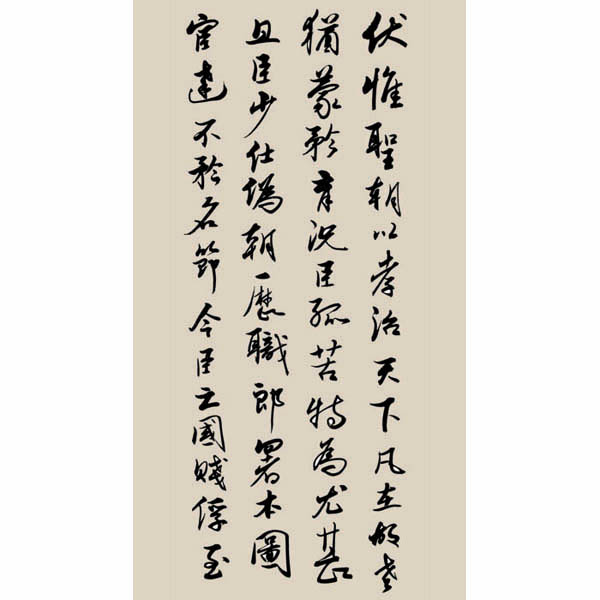 伏惟聖朝以孝治天下凡在故老
猶蒙矜育況臣孤苦特為尤甚
且臣少仕偽朝歷職郎署本圖
宦達不矜名節今臣亡國賤俘至